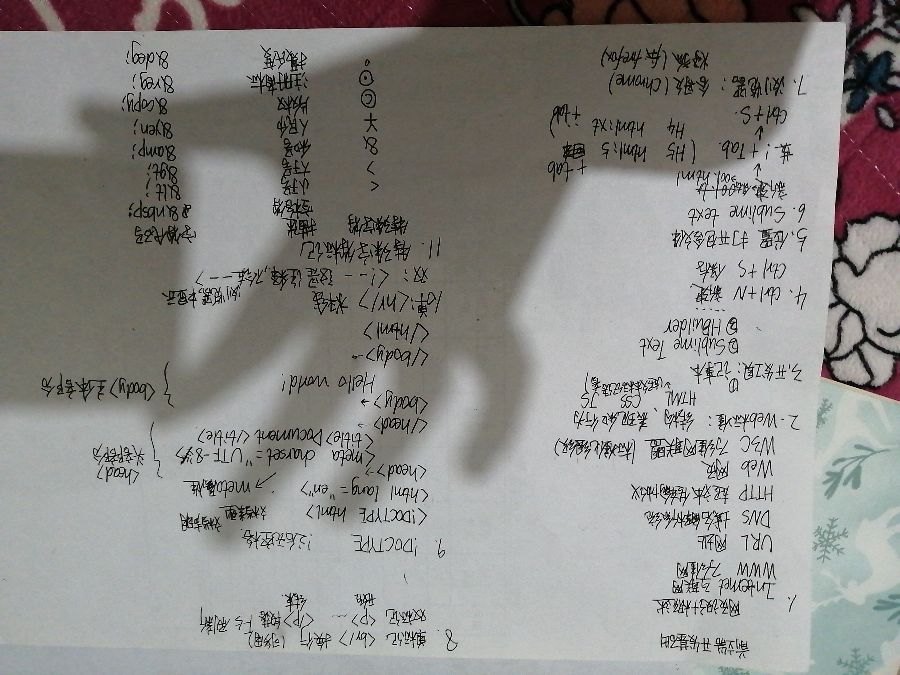 前端开发基础
1. 网页设计概述
Internet 互联网
WWW 万维网
URL 网址
DNS 域名解析系统
HTTP 超文本传输协议
Web 网页
W3C 万维网联盟
2. Web标准：结构、表现和行为
HTML CSS JS
3. 开发工具：①记事本
②Sublime Text
③HBuilder
......
4. Ctrl + N 新建
Ctrl + S 保存
5. 位置 打开
6. Sublime text
新建
html
! + Tab (H5 html:5 + tab
H4 html:xt + tab)
Ctrl + S
7. 浏览器：谷歌 (Chrome)
(firefox)
8. 单标记 <br/> 换行
双标记 <p> ... <p>
9. !DOCTYPE
<!DOCTYPE html> 文档类型
<html lang="en">
<head> meta属性
<meta charset="UTF-8">
<title>Document</title>
</head>
<head> 头部部分
<body>
Hello world!
</body>
<body>主体部分
</html>
10. 单：<hr/> 水平线
双：<!-- 这是注释，-->
11. 特殊字符标记
特殊字符 描述 字符代码
空格符 &nbsp;
< 小于号 &lt;
> 大于号 &gt;
& 和号 &amp;
¥ 人民币 &yen;
© 版权 &copy;
注册商标 &reg;
° 摄氏度 &deg;